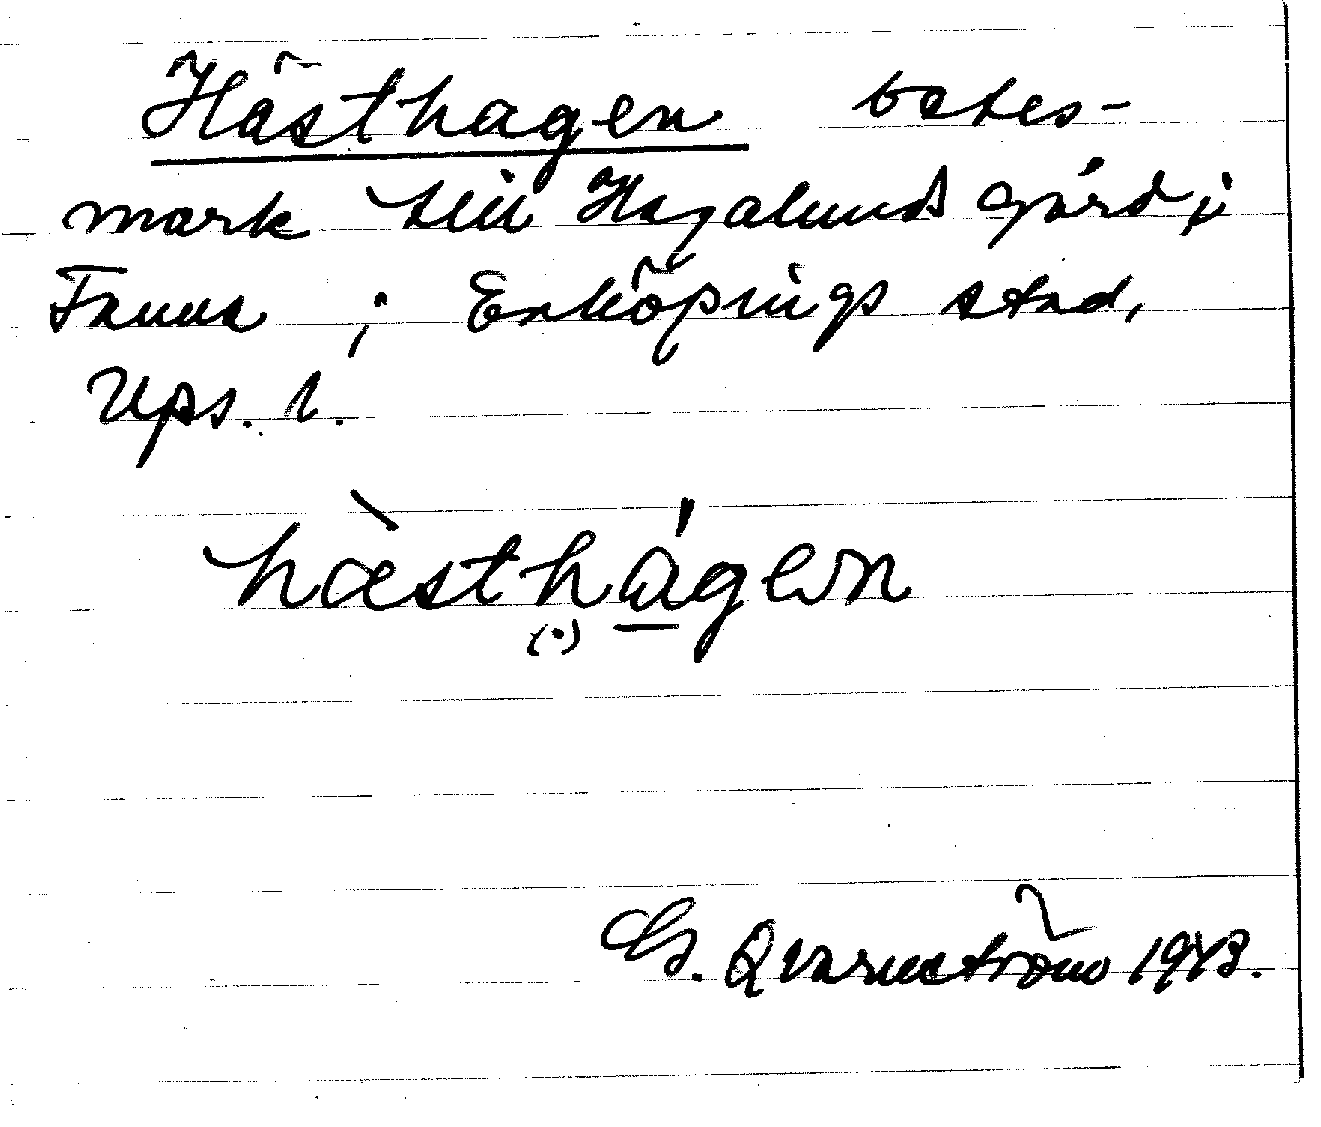 Hästhagen betes-
mark till Hagalunds gård i
Fanna i Enköpings stad,
Ups. l.
hæ̀sthágen
(.)
G. Qvarnström 1943.